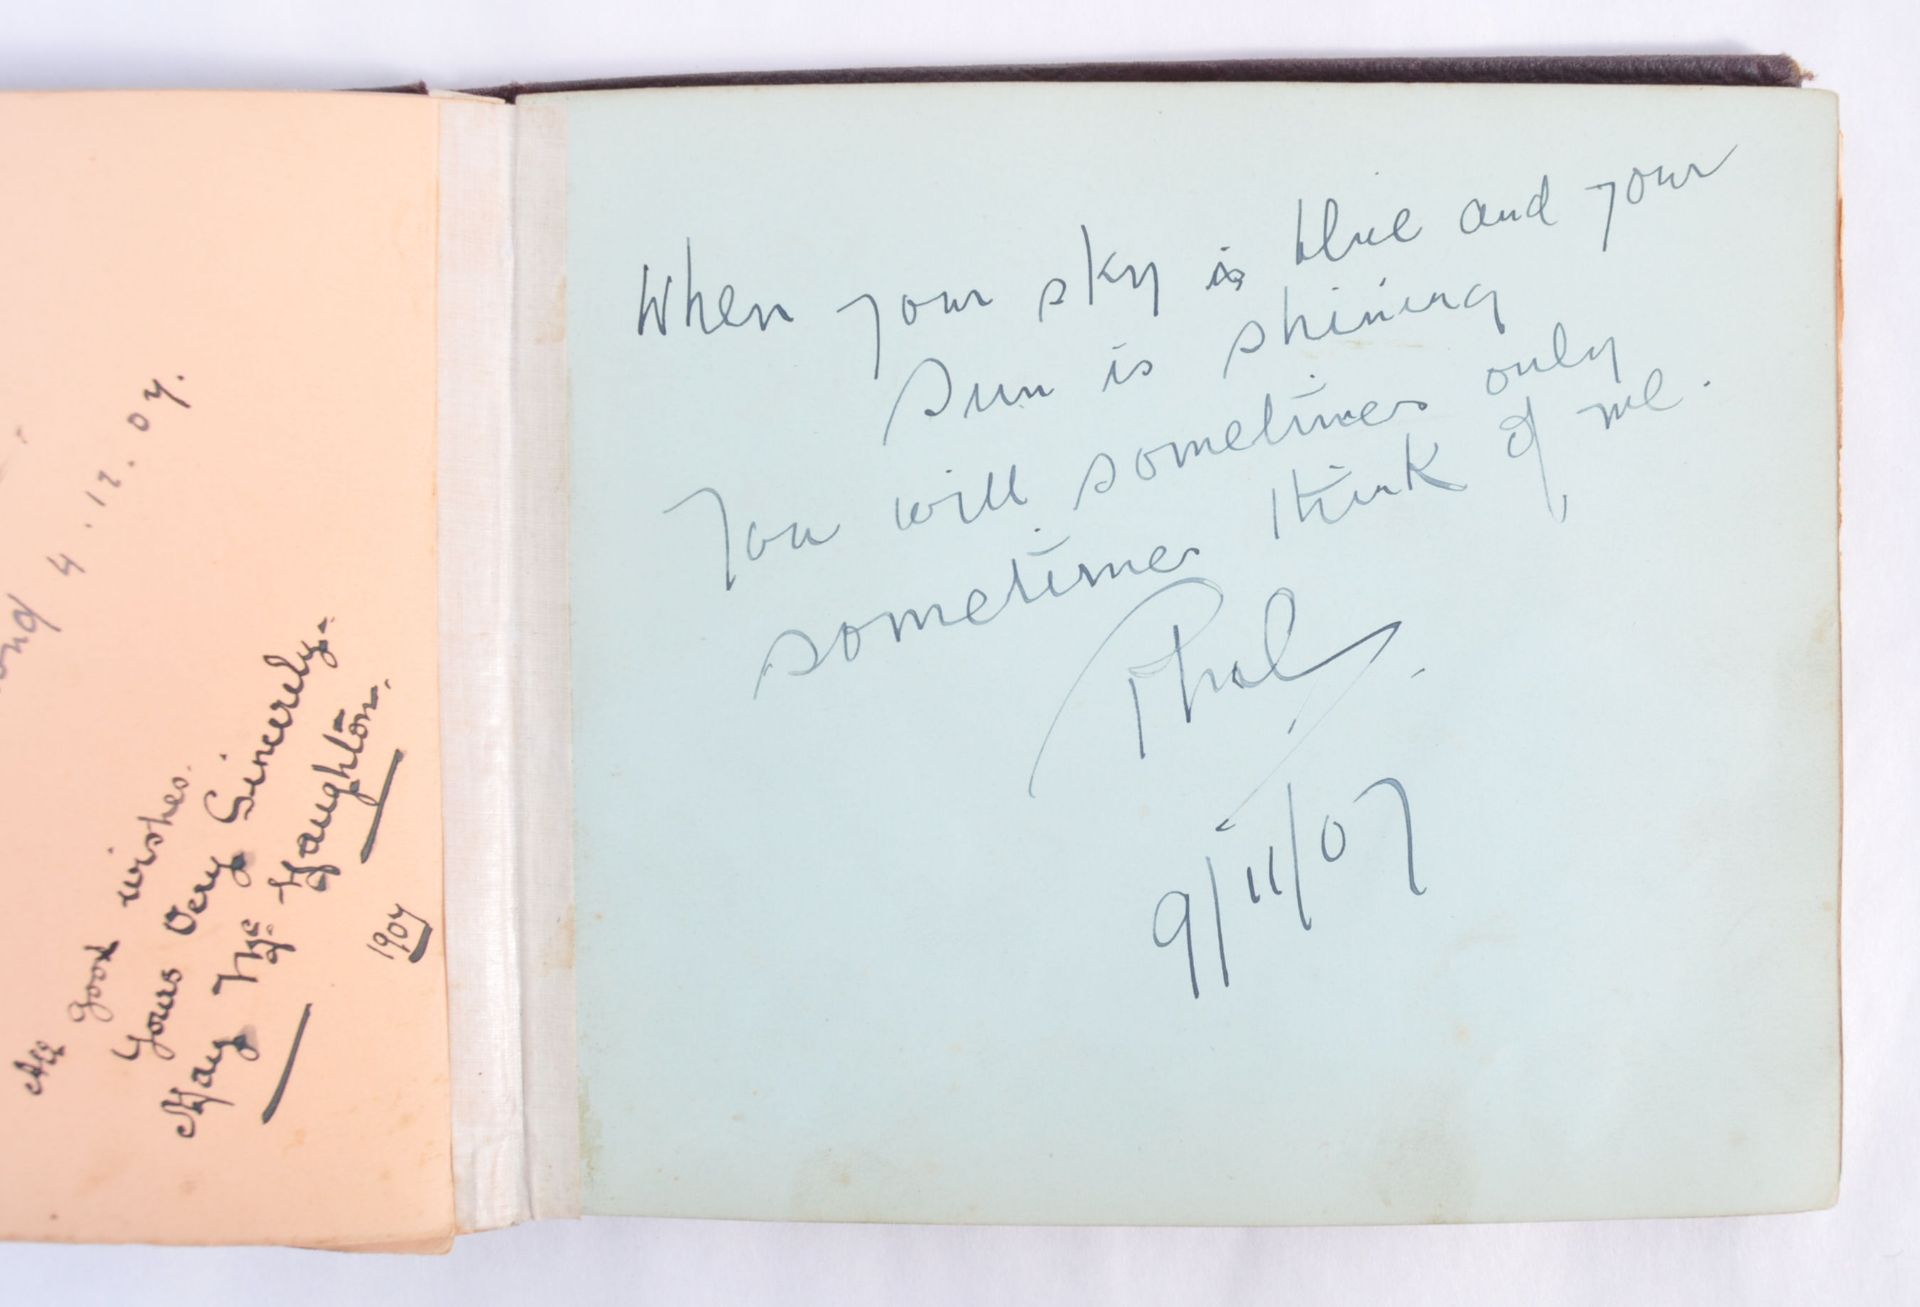 4.12.07.
All good wishes.
Yours Very Sincerely.
May Mc Naughton.
1907
When your sky is blue and your
Sun is shining
You will sometimes only
sometimes think of me.
9/11/07